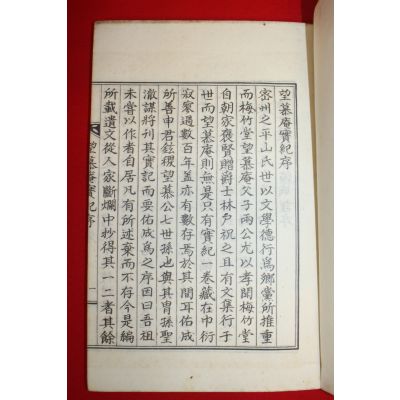 望慕庵實紀序
密州之平山氏世以文學德行爲鄉黨所推重
而梅竹堂望慕庵父子兩公尤以孝聞梅竹堂
自朝家褒贒贈爵士林尸祝之且有文集行于
世而望慕庵則無是只有實紀一卷藏在巾衍
寂寥過數百年盖亦有數存焉於其間耳佑成
所善申君鉉稷望慕公七世孫也與其胄孫聖
澈謀將刊其實記而要佑成爲之序因曰吾祖
未嘗以作者自居凡有所述棄而不存今是編
所載遺文從人家斷爛中抄得其一二者其餘
望慕庵實紀序
一